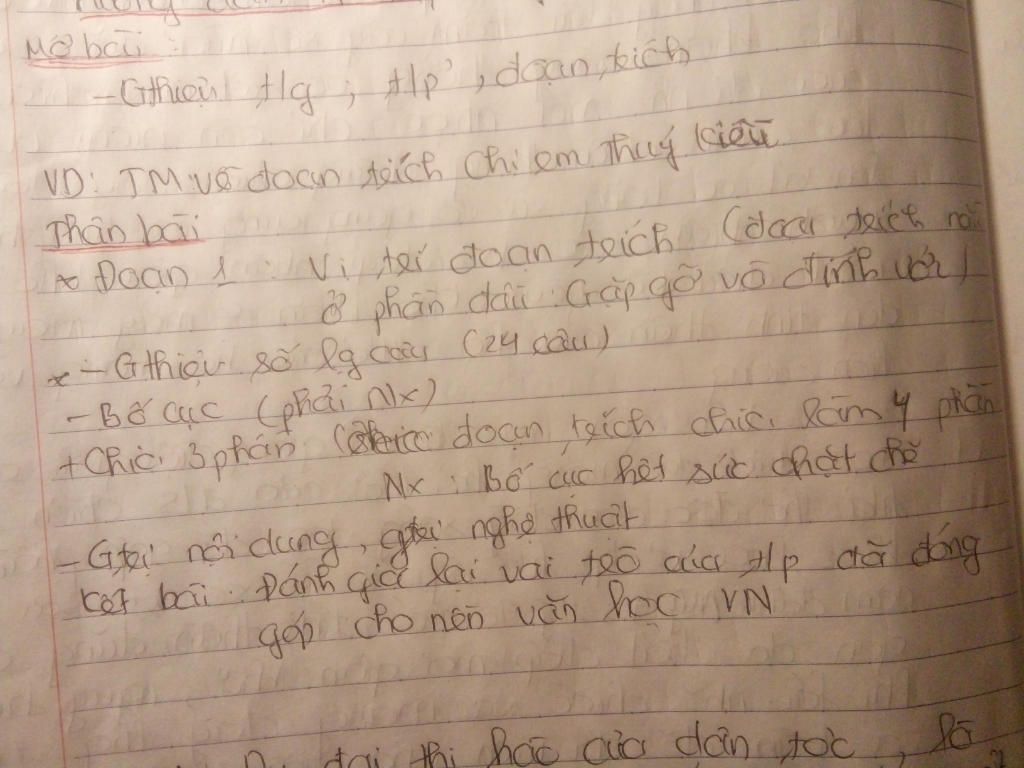 Mở bài :
- Gthiệu t/g ; t/p , đoạn trích
VD: TM về đoạn trích Chị em Thuý Kiều
Thân bài
* Đoạn 1 : Vị trí đoạn trích (đoạn trích
ở phần đầu : Gặp gỡ và đính ước)
* - Gthiệu số lg câu (24 câu)
- Bố cục (phải Nx)
+ Chia 3 phần đoạn trích chia làm 4 phần
Nx : Bố cục hết sức chặt chẽ
- Gtrị nội dung, gtrị nghệ thuật
Kết bài : Đánh giá lại vai trò của t/p đã đóng
góp cho nền văn học VN
đại thi hào của dân tộc , là